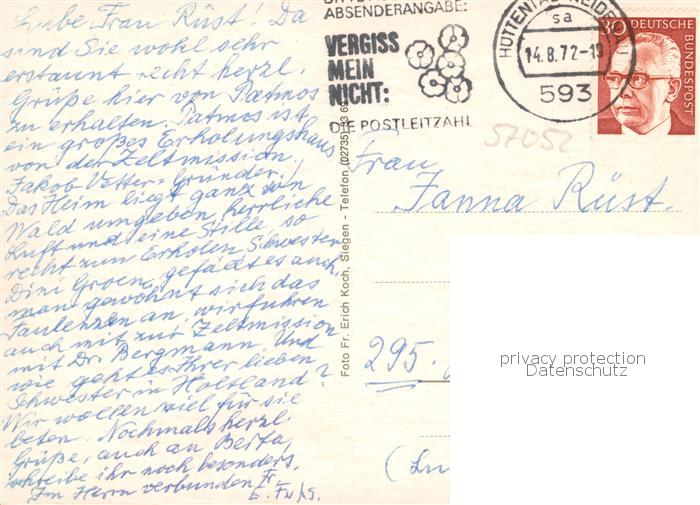 Liebe Frau Rüst! Da
sind Sie wohl sehr
erstaunt recht herzl.
Grüße hier von Patmos
zu erhalten. Patmos ist
ein großes Erholungshaus
von der Zeltmission.
Jakob Vetter=Gründer.
Das Heim liegt ganz von
Wald umgeben, herrliche
Luft und eine Stille so
recht zum Erholen. Schwester
Dini Groen, gefädt es auch,
man gewöhnt sich das
Faulenzen an, wir fuhren
auch mit zur Zeltmission
mit Dr. Bergmann. Und
wie geht es Ihrer lieben
Schwester in Holtland?
Wir wollen viel für sie
beten. Nochmals herzl.
Grüße, auch an Berta,
schreibe ihr noch besonders.
Im Herrn verbunden Fr.
ABSENDERANGABE:
VERGISS
MEIN
NICHT:
DIE POSTLEITZAHL
HÜTTENTAL-WEIDENAU
sa
14.8.72-19
593
30 DEUTSCHE
BUNDESPOST
57052
Foto Fr. Erich Koch, Siegen - Telefon (02735)
Frau
Janna Rüst.
295.
privacy protection
Datenschutz